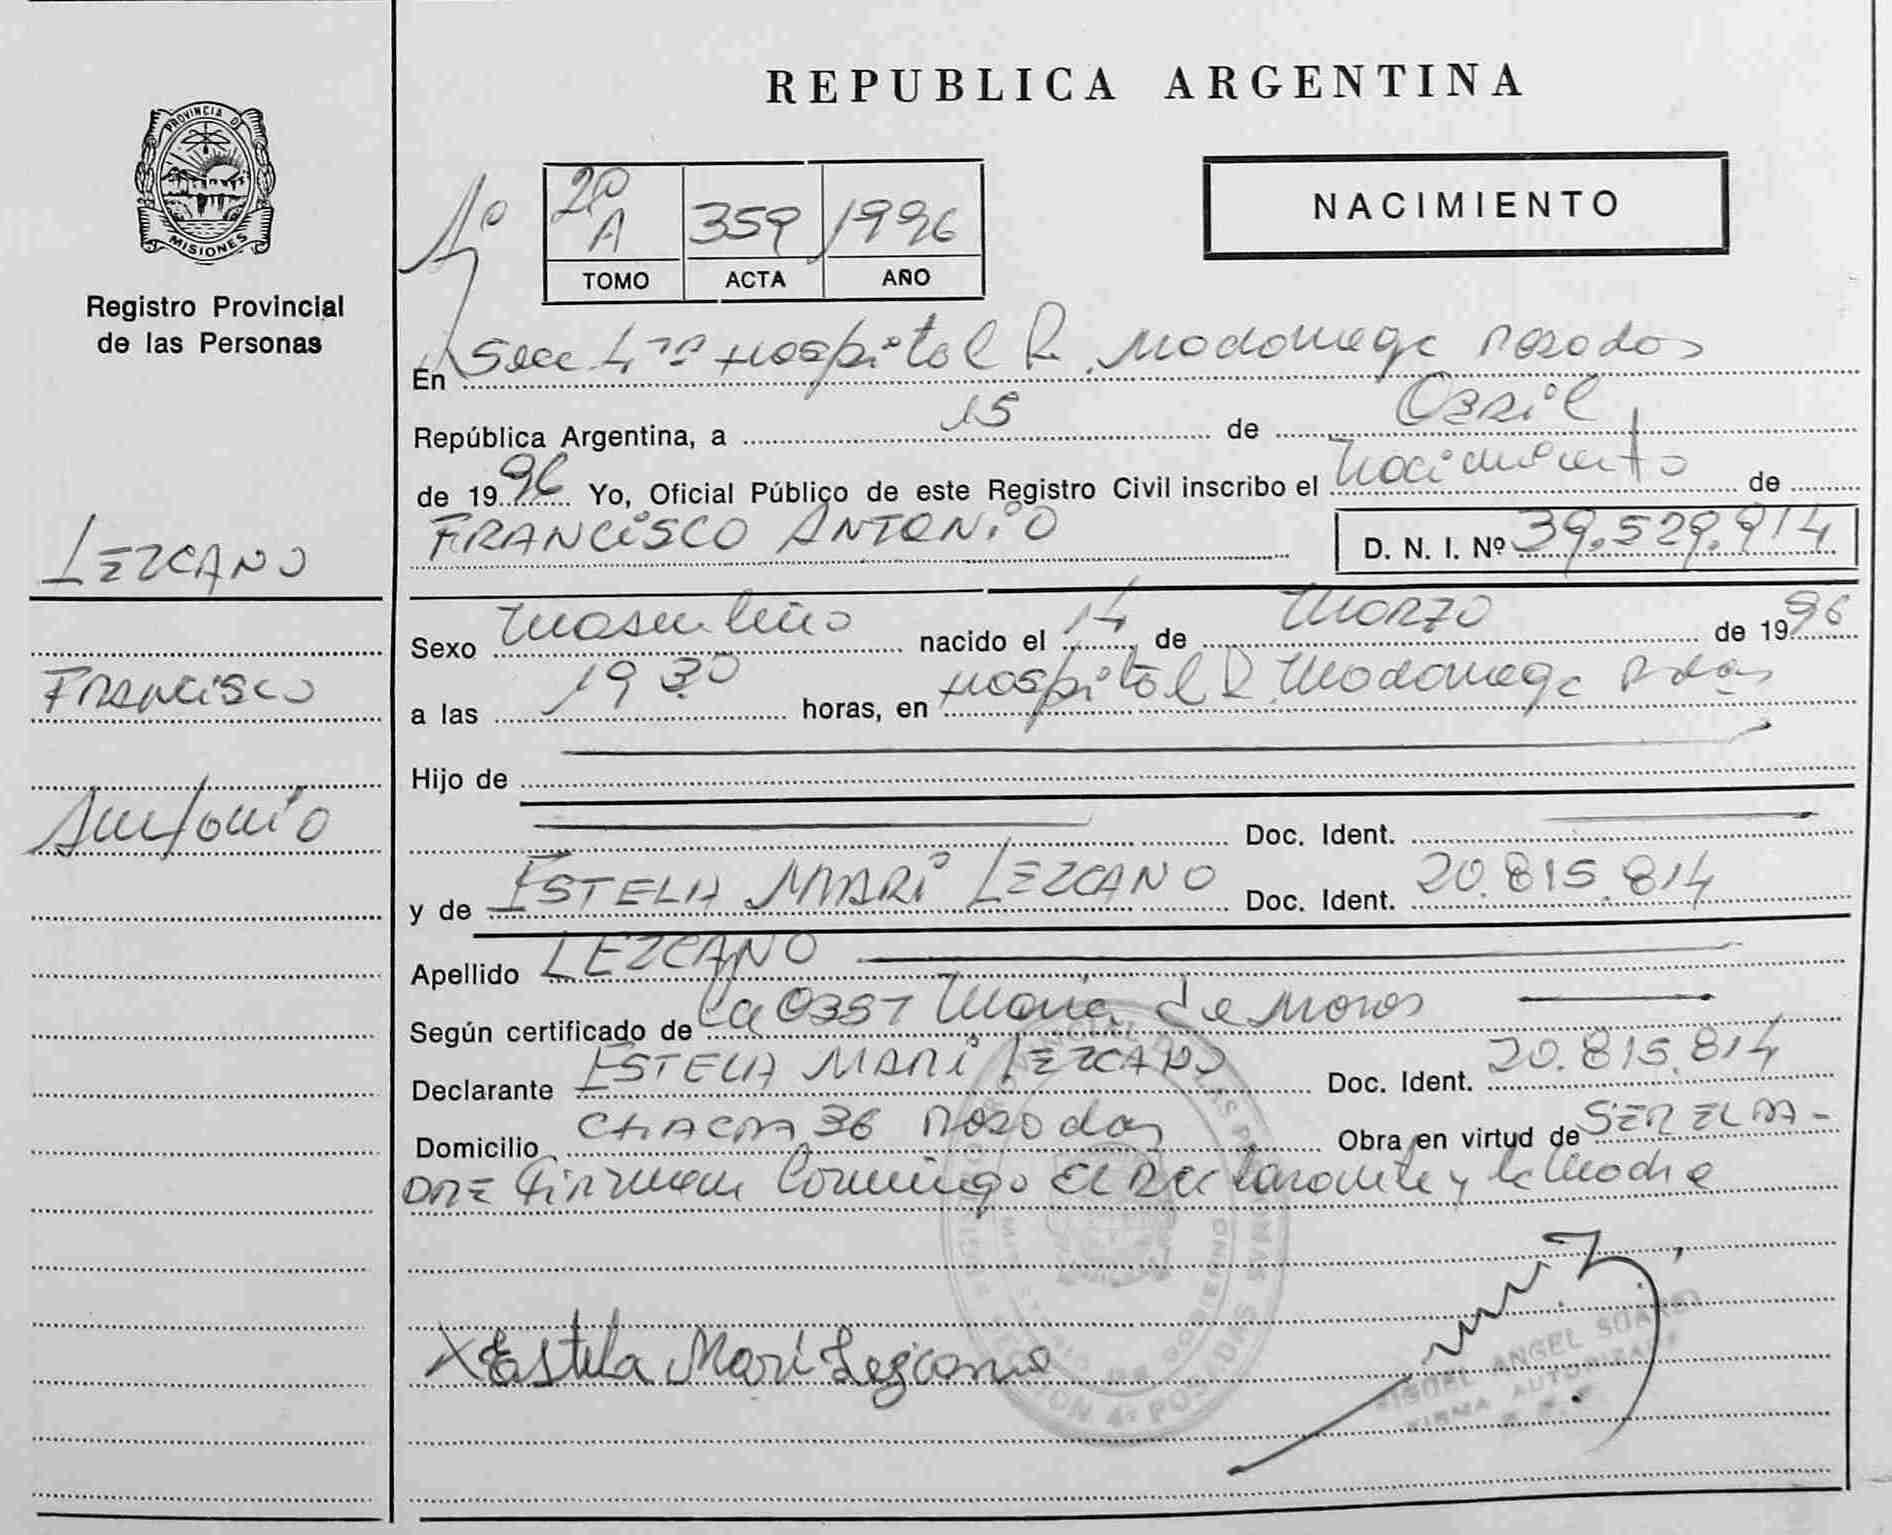 REPUBLICA ARGENTINA
PROVINCIA D
MISIONES
Registro Provincial
de las Personas
NACIMIENTO
2º A 359 1996
TOMO ACTA AÑO
En Secc 4ta Hospital R. Madariaga Posadas
República Argentina, a 15 de Abril
de 1996 Yo, Oficial Público de este Registro Civil inscribo el Nacimiento de
FRANCISCO ANTONIO D. N. I. Nº 39.529.914
LEZCANO
Francisco
Antonio
Sexo Masculino nacido el 14 de Marzo de 1996
a las 19 30 horas, en Hospital R. Madariaga Pdas
Hijo de
Doc. Ident.
y de ESTELA MARI LEZCANO Doc. Ident. 20.815.814
Apellido LEZCANO
Según certificado de La Obst Maria de Moros
Declarante ESTELA MARI LEZCANO Doc. Ident. 20.815.814
Domicilio CHACRA 36 Posadas Obra en virtud de SER EL PA-
DRE Firman Conmigo El Declarante y la Madre
X Estela Mari Lezcano
MIGUEL ANGEL SUAREZ
FIRMA AUTORIZADA
SECCION 4ª POSADAS